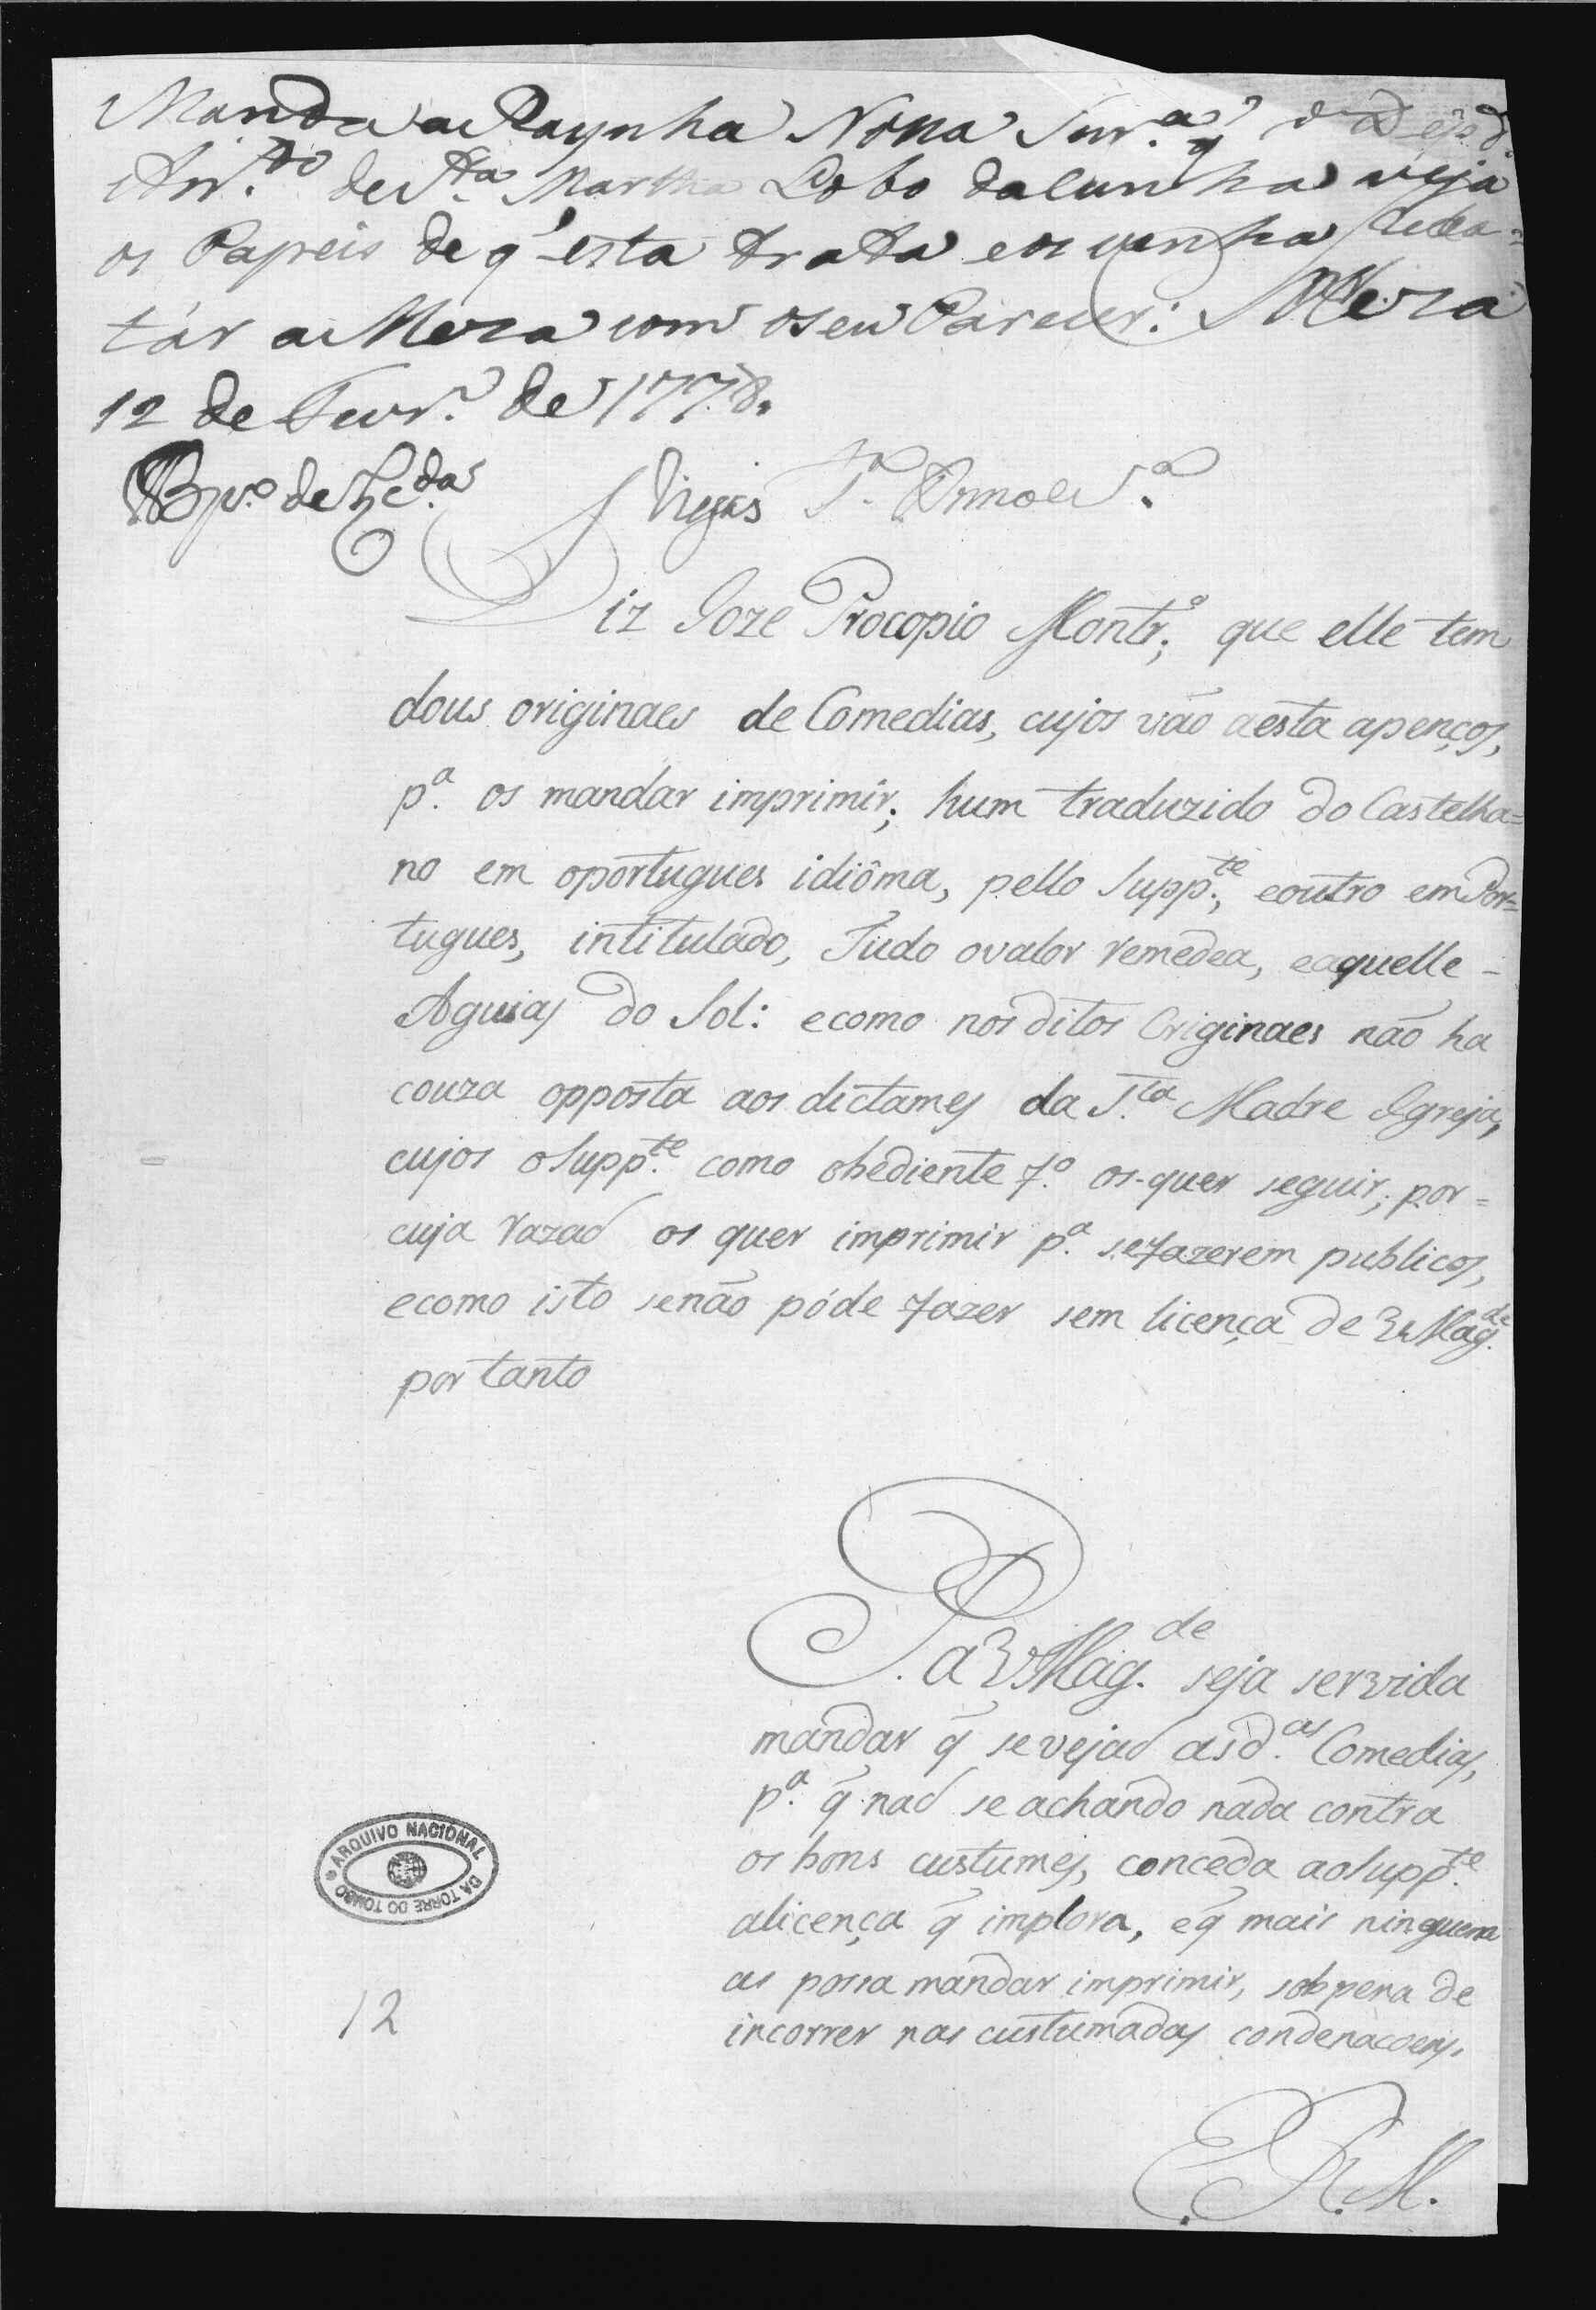 Manda a Raynha Nossa Snr.ª q̃ o Dep.do
Ant.º de S.ta Martha Lobo da Cunha veja
os Papeis de q̃ esta trata e os venha Rela=
tár a Meza com o seu Parecer: Meza
12 de Fevr.º de 1778.
Bpo. de
Diz Joze Procopio Montr.º; que elle tem
dous originaes de Comedias, cujos vão aesta apenços,
p.ª os mandar imprimir; hum traduzido do Castelha=
no em oportugues idiôma, pello Supp.te, eoutro em Por=
tugues, intitulado, Tudo ovalor remedea, eaquelle -
Aguias do Sol: ecomo nos ditos Originaes não ha
couza opposta aos dictames da S.ta Madre Igreja,
cujos oSupp.te como obediente f.º os-quer seguir; por=
cuja razaõ os quer imprimir p.ª sefazerem publicos,
ecomo isto senão póde fazer sem licença de VMag.de
por tanto
P. a VMag.de seja servida
mandar q̃ sevejaõ asd.as Comedias,
p.ª q̃ naõ se achando nada contra
os bons custumes, conceda aoSupp.te
alicença q̃ implora, eq̃ mais ninguem
as possa mandar imprimir, sobpena de
incorrer nas custumadas condenacoens.
E. R. M.
ARQUIVO NACIONAL DA TORRE DO TOMBO
12